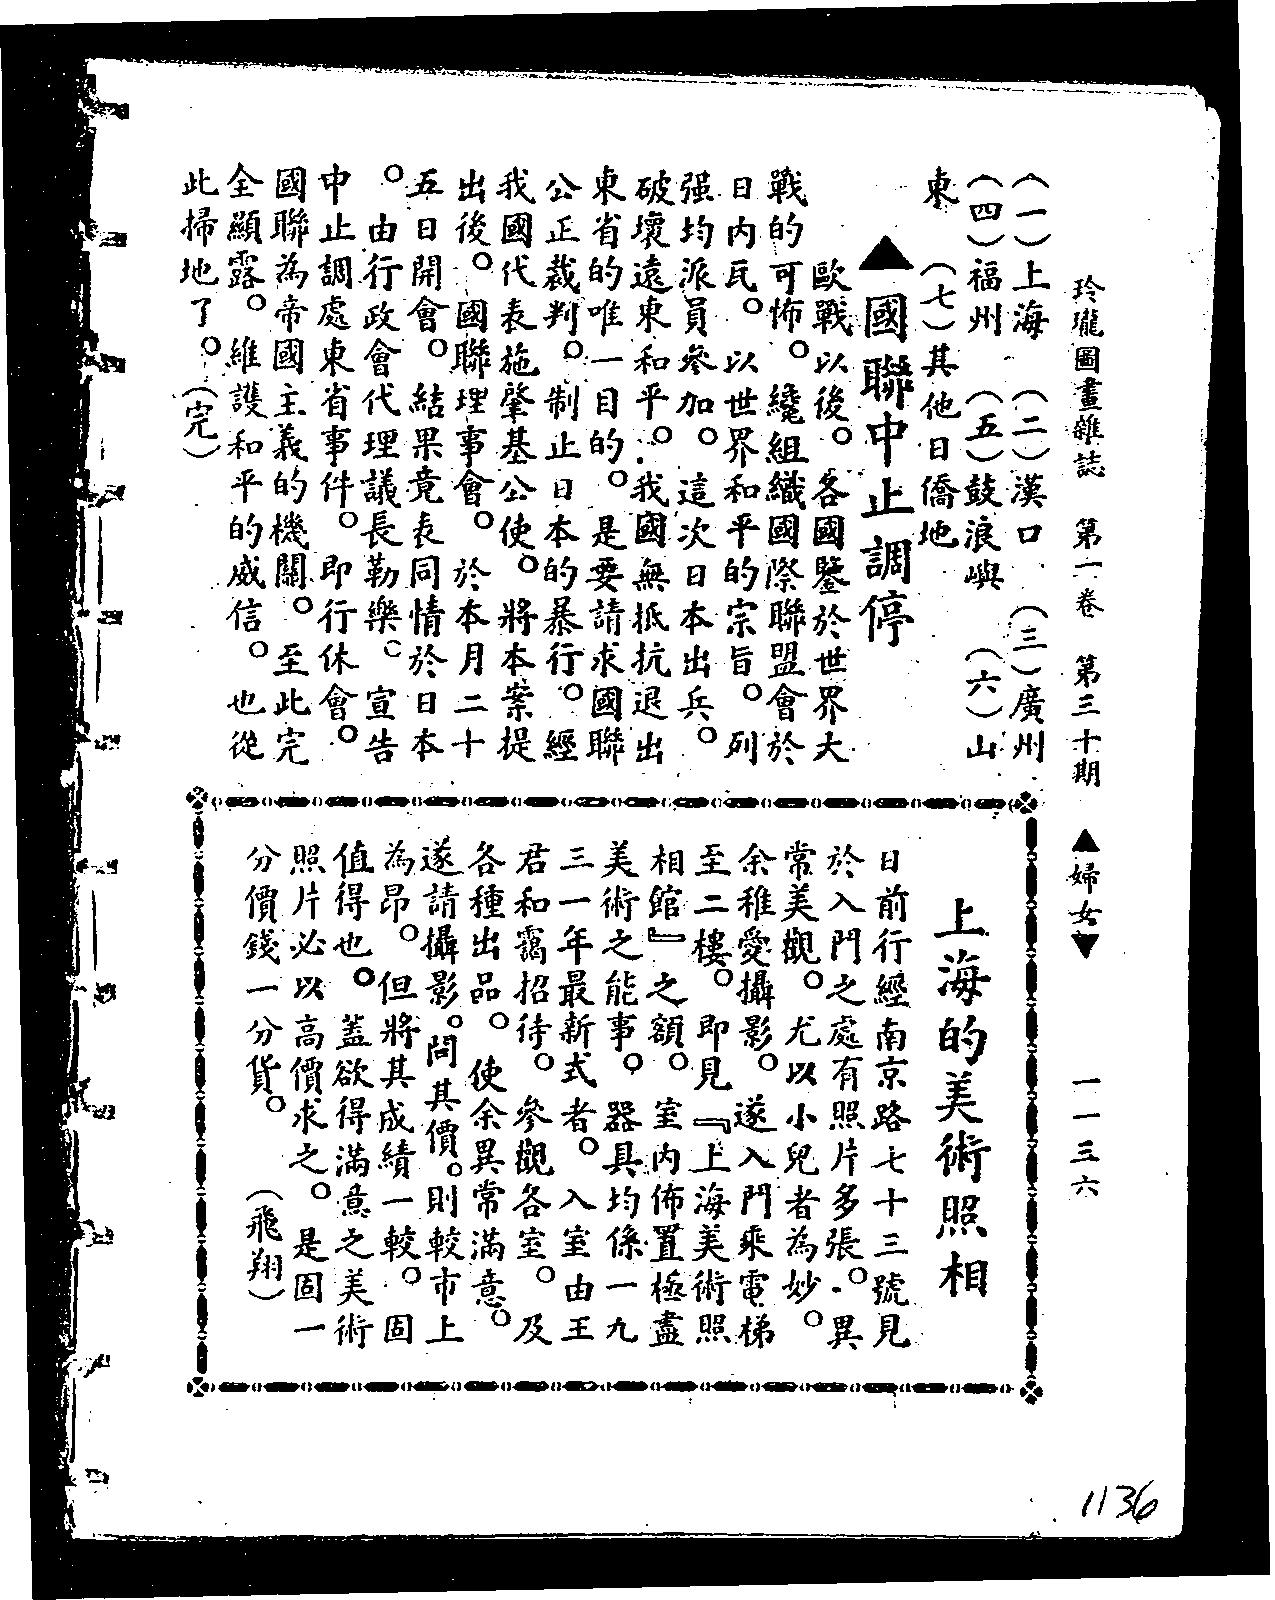 玲瓏圖畫雜誌 第一卷 第三十期 ▲婦女▼ 一一三六
(一)上海 (二)漢口 (三)廣州
(四)福州 (五)鼓浪嶼 (六)山
東 (七)其他日僑地
▲國聯中止調停
歐戰以後。各國鑒於世界大
戰的可怖。纔組織國際聯盟會於
日內瓦。以世界和平的宗旨。列
强均派員參加。這次日本出兵。
破壞遠東和平。我國無抵抗退出
東省的唯一目的。是要請求國聯
公正裁判。制止日本的暴行。經
我國代表施肇基公使。將本案提
出後。國聯理事會。於本月二十
五日開會。結果竟表同情於日本
。由行政會代理議長勒樂。宣告
中止調處東省事件。即行休會。
國聯為帝國主義的機關。至此完
全顯露。維護和平的威信。也從
此掃地了。(完)
上海的美術照相
日前行經南京路七十三號見
於入門之處有照片多張。異
常美觀。尤以小兒者為妙。
余稚愛攝影。遂入門乘電梯
至二樓。即見『上海美術照
相館』之額。室內佈置極盡
美術之能事。器具均係一九
三一年最新式者。入室由王
君和靄招待。參觀各室。及
各種出品。使余異常滿意。
遂請攝影。問其價。則較市上
為昂。但將其成績一較。固
值得也。蓋欲得滿意之美術
照片必以高價求之。是固一
分價錢一分貨。 (飛翔)
1136